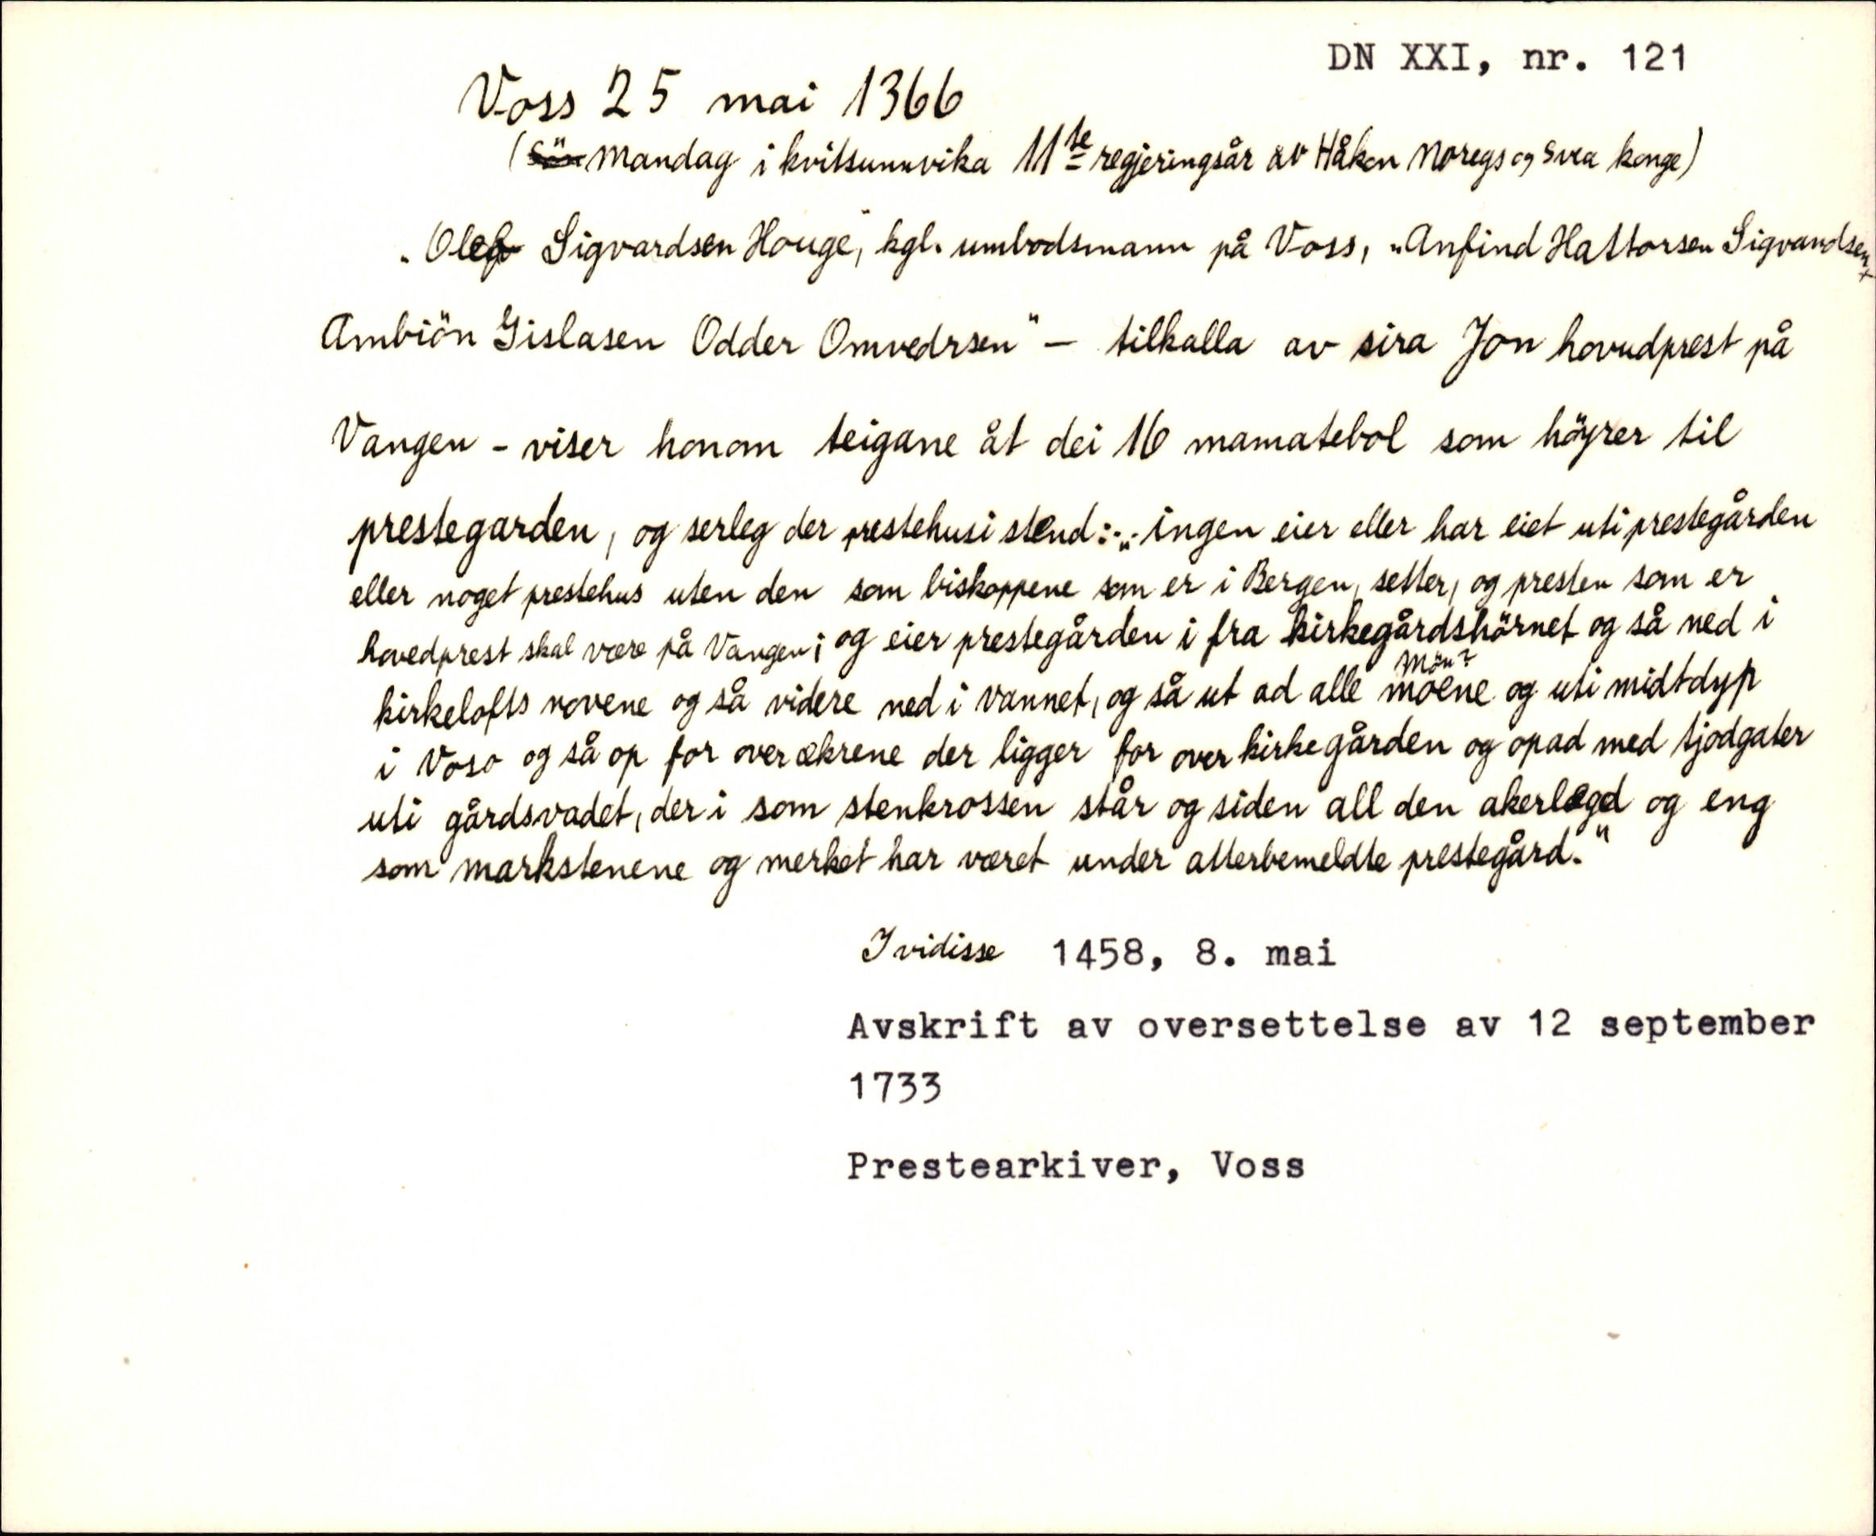 DN XXI, nr. 121
Voss 25 mai 1366
(Mandag i kvitsunnvika 11te regjeringsår av Håkon Noregs og Svea konge)
„Olef Sigvardsen Houge", kgl. umbodsmann på Voss, „Anfind Hattorsen Sigvardsen
Ambiön Gislasen Odder Omvedrsen" – tilkalla av sira Jon hovudprest på
Vangen – viser honom teigane åt dei 16 mamatebol som höyrer til
prestegarden, og serleg der prestehusi stend: „ingen eier eller har eiet uti prestegården
eller noget prestehus uten den som biskoppene som er i Bergen, setter, og presten som er
hovedprest skal være på Vangen; og eier prestegården i fra kirkegårdshörnet og så ned i
kirkelofts novene og så videre ned i vannet, og så ut ad alle moene og uti midtdyp
Mön?
i Voso og så op for over ækrene der ligger for over kirkegården og opad med tjodgater
uti gårdsvadet, der i som stenkrossen står og siden all den akerlægd og eng
som markstenene og merket har været under atterbemeldte prestegård."
I vidisse 1458, 8. mai
Avskrift av oversettelse av 12 september
1733
Prestearkiver, Voss